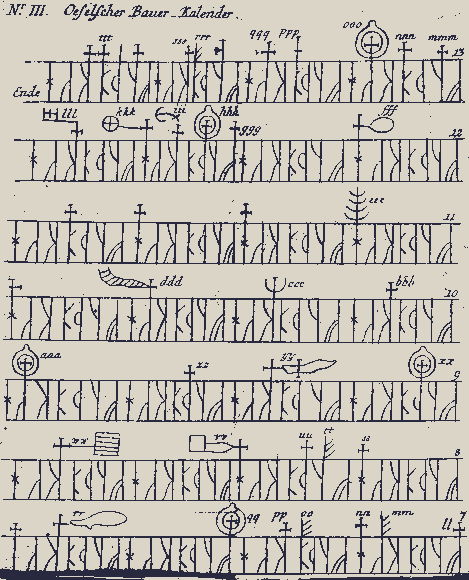 Nr. III. Oeselscher Bauer-Kalender.
ttt sss rrr qqq ppp ooo nnn mmm
13
Ende
lll kkk iii hhh ggg fff
12
eee
11
ddd ccc bbb
10
aaa zz yy xx
9
vv uu tt ss
8
rr qq pp oo nn mm ll
7